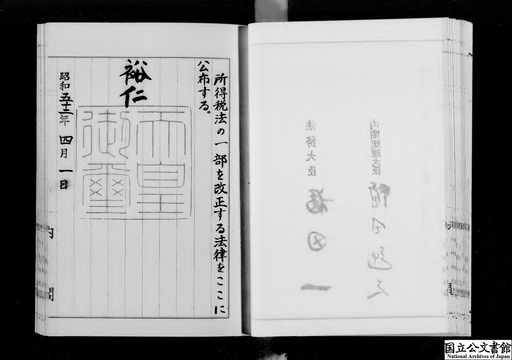 所得税法の一部を改正する法律をここに
公布する。
裕仁
天皇御璽
昭和五十三年四月一日
内閣
内閣総理大臣
福田赳夫
法務大臣
国立公文書館
National Archives of Japan